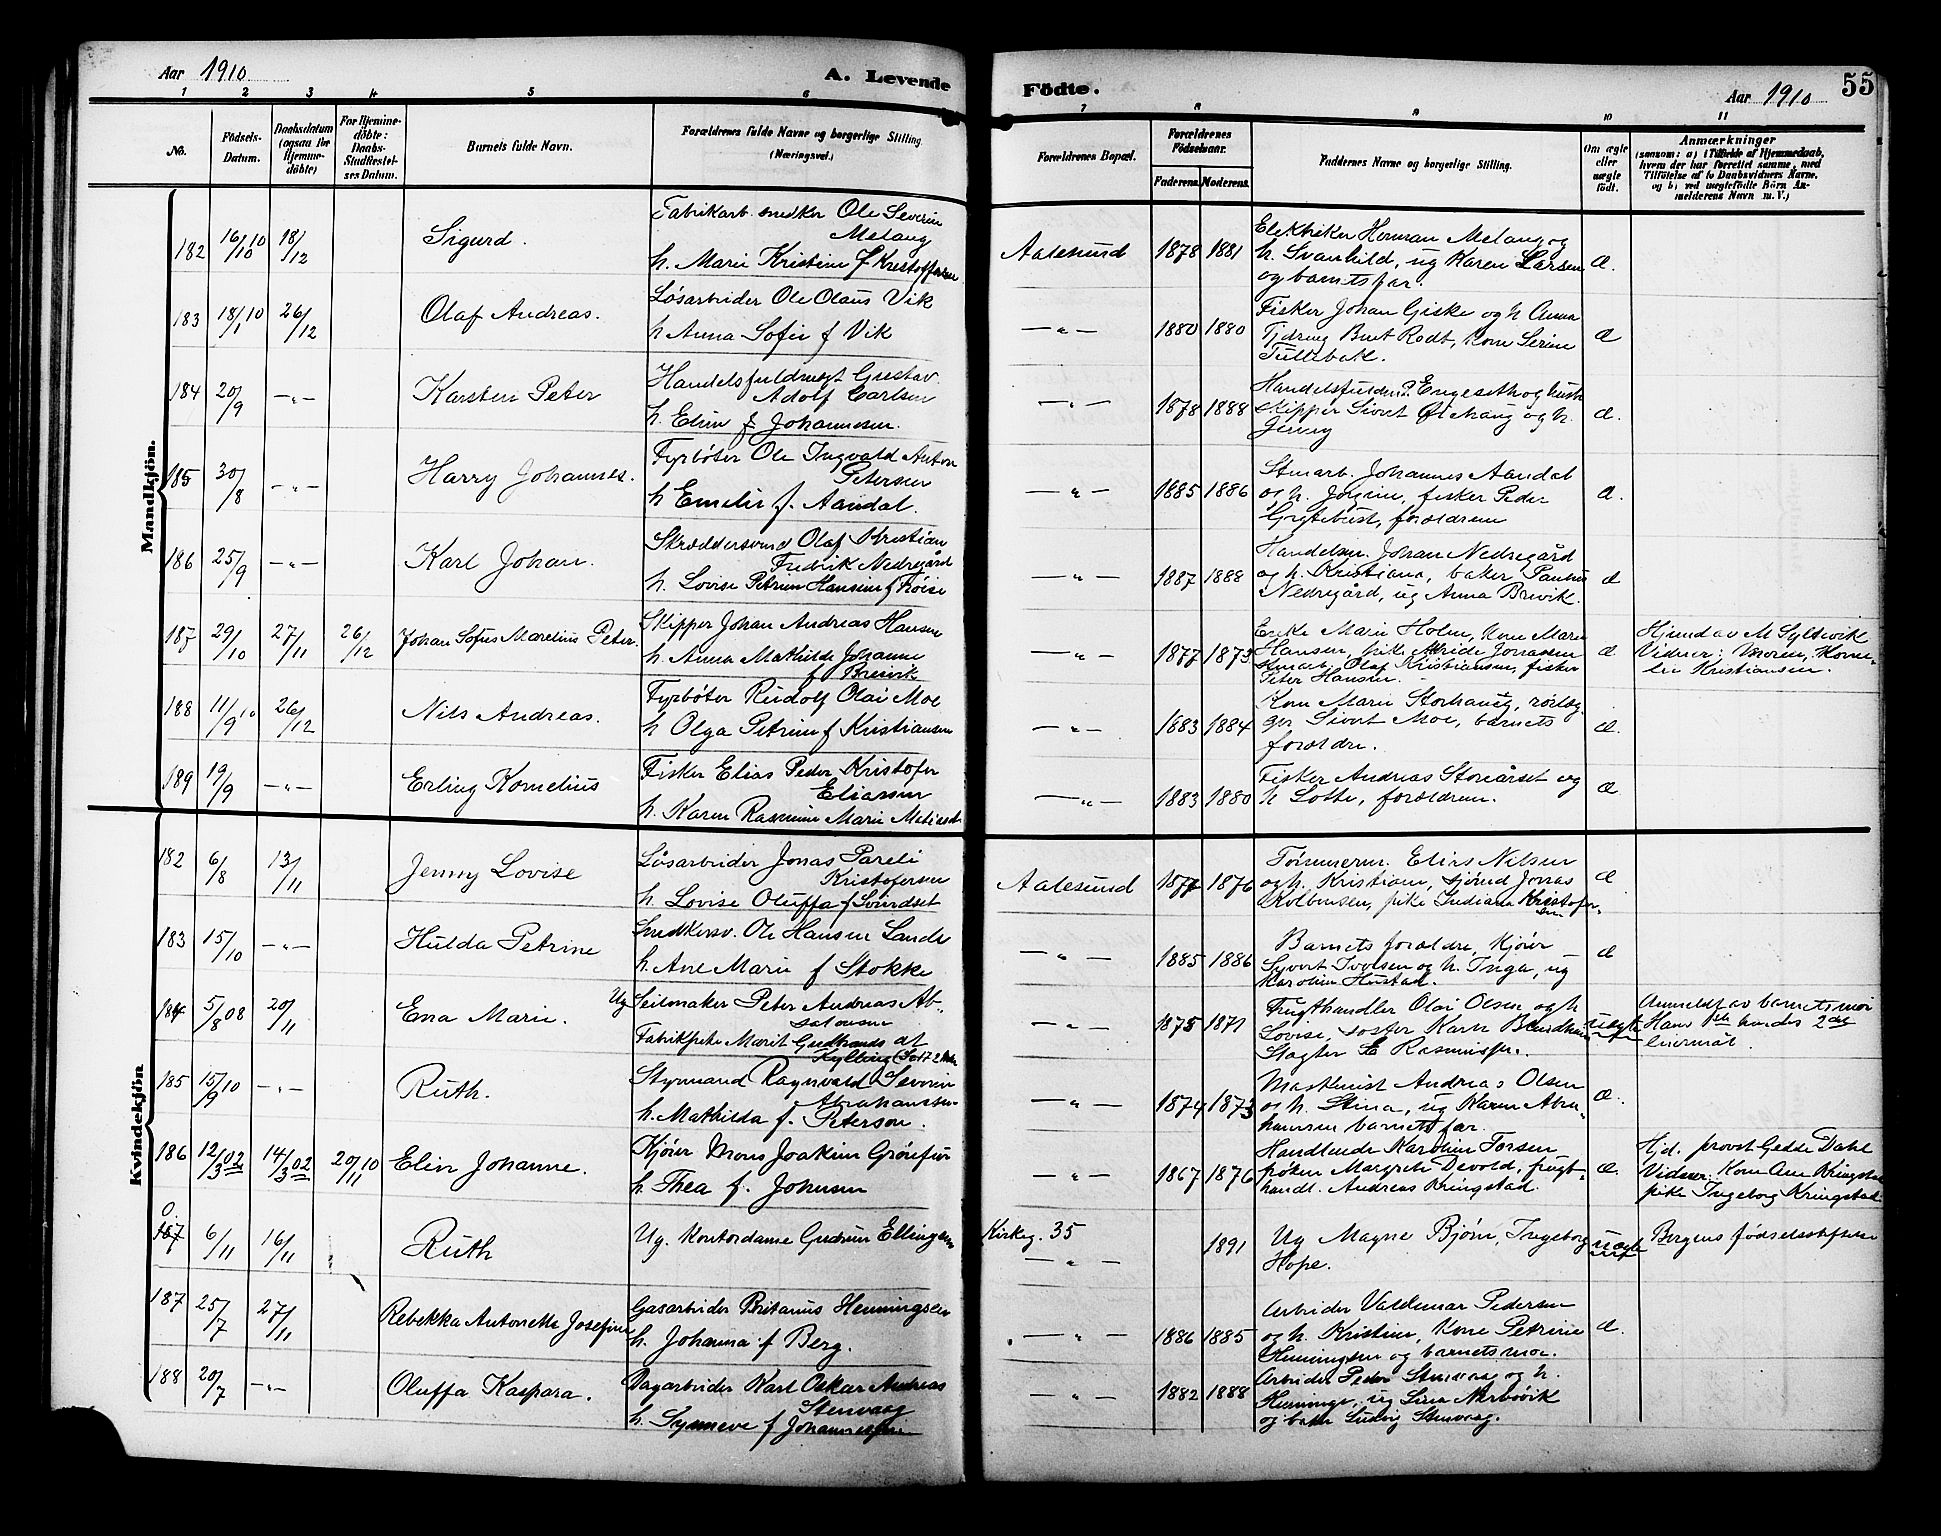 Aar 1910
A. Levende
Födte.
Aar 1910
55
1 2 3 4 5 6 7 8 9 10 11
No.
Födsels-
Datum.
Daabsdatum
(ogsaa for
Hjemme-
döbte)
For Hjemme-
döbte:
Daabs-
Stadfæstel-
ses Datum.
Barnets fulde Navn.
Forældrenes fulde Navne og borgerlige Stilling
(Næringsvei.)
Forældrenes Bopæl.
Forældrenes
Födselsaar.
Faderens. Moderens.
Faddernes Navne og borgerlige Stilling.
Om ægte
eller
uægte
födt.
Anmærkninger
(saasom: a) i Tilfælde af Hjemmedaab,
hvem der har forrettet samme, med
Tilföielse af to Daabsvidners Navne,
og b) ved uægtefödte Börn An-
melderens Navn m. V.)
Mandkjön.
182 16/10 10 18/12 Sigurd.
Fabrikarb. snedker Ole Severin
Melang
h. Marie Kristine f Kristoffersen
Aalesund 1878 1881
Elektriker Herman Melang og
h. Svanhild, ug Karen Larsen
og barnets far.
æ.
183 18/1 10 26/12 Olaf Andreas.
Løsarbeider Ole Olaus Vik
h Anna Sofie f Vik
— " — 1880 1880
Fisker Johan Giske og h Anna
Rodt, kone Serine
æ
184 20/9 — " — Karsten Peter
Handelsfuldmægt Gustav
Adolf Carlsen
h. Elen f Johannesen.
— " — 1878 1888
Engeseth og hustr
skipper Sivert og h.
æ.
185 30/8 — " — Harry Johannes.
Fyrbøter Ole Ingvald Anton
Petersen
h Emelie f. Aandal.
— " — 1885 1886
Stuarb. Johannes Aandal
og h. Jørgine, fisker Peder
Grytebust, forældrene
æ.
186 25/9 — " — Karl Johan.
Skræddersvend Olaf Kristian
Fredrik Nedregård
h. Lovise Petrine Hansine f Frøise
— " — 1887 1888
Handelsm. Johan Nedregård
og h. Kristiana, baker Paulus
Nedregård, ug Anna Brevik.
æ
187 29/10 27/11 26/12 Johan Sofus Marelius Peter.
Skipper Johan Andreas Hansen
h. Anna Mathilde Johanne
f Brevik
— " — 1877 1873
Enke Marie Holm, kone Marie
Hansen, pike Jonassen
stuarb. Olaf Kristiansen, fisker
Peter Hansen.
æ
Hjemd av M Syldevik
Vidner: Moren, Korne-
lie Kristiansen.
188 11/9 10 26/12 Nils Andreas.
Fyrbøter Rudolf Olai Moe
h Olga Petrine f Kristiansen
— " — 1883 1884
Kone Marie Storhaug, rørlæg-
ger Sivert Moe, barnets
forældre.
æ.
189 19/9 — " — Erling Kornelius
Fisker Elias Peder Kristofer
Eliassen
h. Karen Rasmine Marie
— " — 1883 1880
Fisker Andreas og
h Lotte, forældrene.
æ
Kvindekjön
182 6/8 13/11 Jenny Lovise
Løsarbeider Jonas Pareli
Kristofersen
h. Lovise Oluffa f Svindset
Aalesund 1877 1876
Tømmerm. Elias Nilsen
og h. Kristiane, sjømd Jonas
Kolbensen, pike Indiana Kristofer-
sen
æ
183 15/10 — " — Hulda Petrine
Snedkersv. Ole Hansen Sande
h. Ane Marie f Stokke
— " — 1885 1886
Barnets forældre, Kjører
Syvert Iversen og h. Inga, ug
Karoline Hustad.
æ
184 5/8 08 20/11 Ena Marie.
Ug Seilmaker Peter Andreas Ab-
salonsen
Fabrikpike Marit Gudbrands dt
Kylling
— " — 1875 1871
Frugthandler Olai Olsen og h
Lovise, søster Karn
Slagter E Rasmussen.
uægte
Anmeldt av barnets mor
Hans 1ste hendes 2det
leiermål.
185 15/9 10 — " — Ruth.
Styrmand Ragnvald Severin
Abrahamsen
h. Mathilda f. Peterson.
— " — 1874 1873
Maskinist Andreas Olsen
og h. Stina, ug Karen Abra-
hamsen barnets far.
æ.
186 12/3 02 14/3 02 20/11 10 Elin Johanne.
Kjører Mons Joakim Grønfur
h. Thea f. Johnsen
— " — 1867 1876
Handlende Karoline Torsen
frøken Margrete Devold, frugt-
handl. Andreas Kringstad.
æ.
Hjd. provst Gedde Dahl
Vidner: Kone Ane Kringstad
pike Ingeborg Kringstad
0.
187 6/11 16/11 Ruth
Ug. Kontordame Gudrun Ellingsen
Kirkeg. 35
— " — 1891
Ug Magne Bjørn, Ingeborg
Hope.
uægte
Bergens fødselsstiftelse
187 25/7 27/11 Rebekka Antonette Josefine
Gasarbeider Britanus Henningsen
h. Johanna f Berg.
— " — 1886 1885
Arbeider Valdemar Pedersen
og h. Kristine, Kone Petrine
Henningsen og barnets mor.
æ.
188 20/7 — " — Oluffa Kaspara.
Dagarbeider Karl Oskar Andreas
Stenvaag
h. Synneve f Johannessen
— " — 1882 1888
Arbeider Peder Stenvaag og h.
Henninge, ug Lina Nerbøvik
og baker Ludvig Stenvaag.